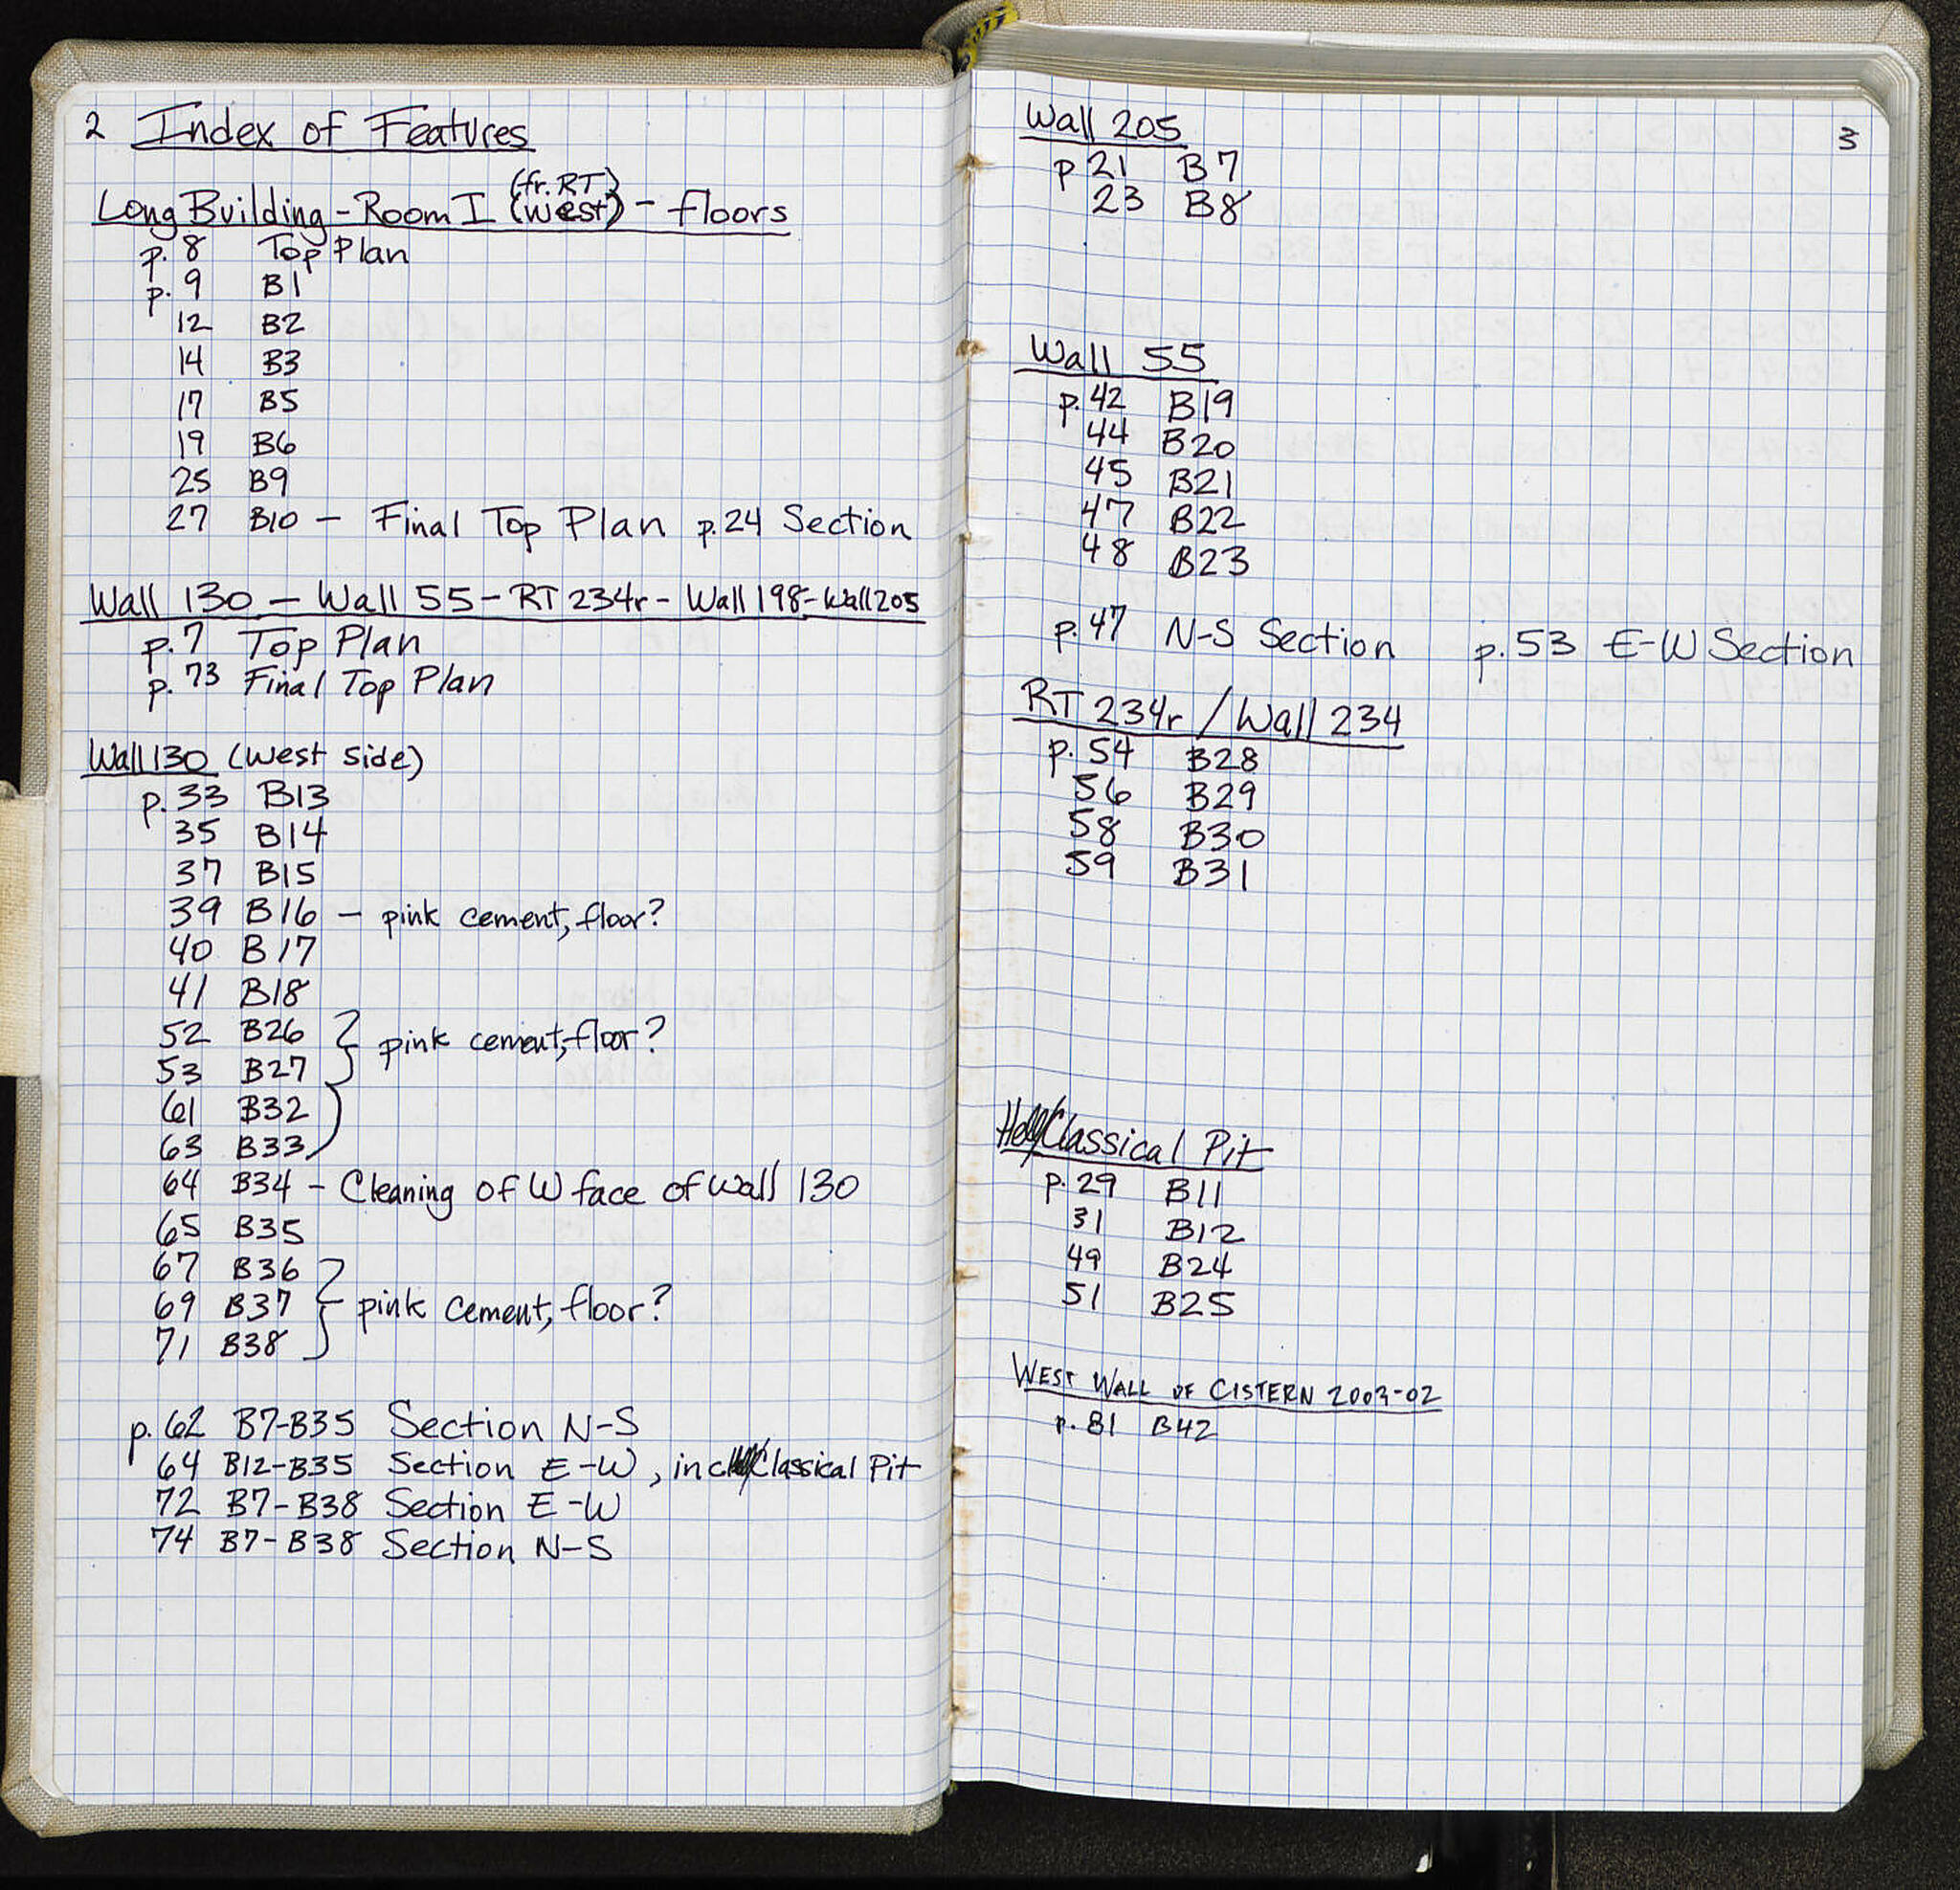 2 Index of Features
Long Building - Room I (fr. RT) (west) - floors
p. 8 Top Plan
p. 9 B1
12 B2
14 B3
17 B5
19 B6
25 B9
27 B10 - Final Top Plan p. 24 Section
Wall 130 - Wall 55 - RT 234r - Wall 198 - Wall 205
p. 7 Top Plan
p. 73 Final Top Plan
Wall 130 (West side)
p. 33 B13
35 B14
37 B15
39 B16 - pink cement, floor?
40 B17
41 B18
52 B26
53 B27 } pink cement, floor?
61 B32
63 B33 )
64 B34 - Cleaning of W face of Wall 130
65 B35
67 B36
69 B37 } pink cement, floor?
71 B38
p. 62 B7-B35 Section N-S
64 B12-B35 Section E-W, incl Classical Pit
72 B7-B38 Section E-W
74 B7-B38 Section N-S
3
Wall 205
p 21 B7
23 B8
Wall 55
p. 42 B19
44 B20
45 B21
47 B22
48 B23
p. 47 N-S Section p. 53 E-W Section
RT 234r / Wall 234
p. 54 B28
56 B29
58 B30
59 B31
Classical Pit
p. 29 B11
31 B12
49 B24
51 B25
WEST WALL OF CISTERN 2003-02
p. 81 B42